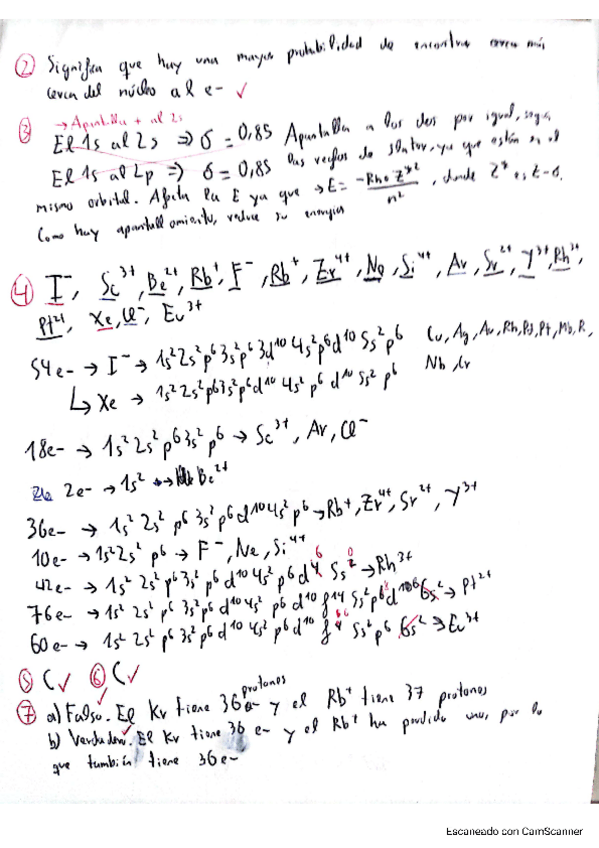 ② Significa que hay una mayor probabilidad de encontrar cerca más
cerca del núcleo al e- ✓
→ Apantalla + al 2s
③ El 1s al 2s ⇒ σ = 0,85 Apantalla a los dos por igual, según
El 1s al 2p ⇒ σ = 0,85 las reglas de slater, ya que están en el
mismo orbital. Afecta la E ya que → E = -Rh·Z*²/n², donde Z* es Z-σ.
Como hay apantallamiento, reduce su energía
④ I⁻, Sc³⁺, Be²⁺, Rb⁺, F⁻, Rb⁺, Zr⁴⁺, Ne, Si⁴⁺, Ar, Sr²⁺, Y³⁺, Rh³⁺,
Pt²⁺, Xe, Cl⁻, Eu³⁺
54e- → I⁻ → 1s²2s²p⁶3s²p⁶3d¹⁰4s²p⁶d¹⁰5s²p⁶ Cu, Ag, Au, Rh, Pd, Pt, Mo, R,
↳ Xe → 1s²2s²p⁶3s²p⁶d¹⁰4s²p⁶d¹⁰5s²p⁶ Nb, Cr
18e- → 1s²2s²p⁶3s²p⁶ → Sc³⁺, Ar, Cl⁻
2e- → 1s² → Be²⁺
36e- → 1s²2s²p⁶3s²p⁶d¹⁰4s²p⁶ → Rb⁺, Zr⁴⁺, Sr²⁺, Y³⁺
10e- → 1s²2s²p⁶ → F⁻, Ne, Si⁴⁺
42e- → 1s²2s²p⁶3s²p⁶d¹⁰4s²p⁶d⁶5s⁰ → Rh³⁺
76e- → 1s²2s²p⁶3s²p⁶d¹⁰4s²p⁶d¹⁰f¹⁴5s²p⁶d⁸6s² → Pt²⁺
60e- → 1s²2s²p⁶3s²p⁶d¹⁰4s²p⁶d¹⁰f⁶5s²p⁶6s² → Eu³⁺
⑤ C ✓ ⑥ C ✓
⑦ a) Falso. El Kr tiene 36 protones y el Rb⁺ tiene 37 protones
b) Verdadero. El Kr tiene 36 e- y el Rb⁺ ha perdido uno, por lo
que también tiene 36e-
Escaneado con CamScanner